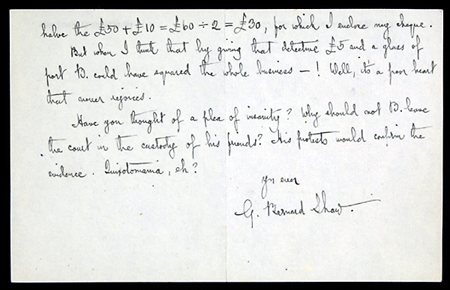 halve the £50 + £10 = £60 ÷ 2 = £30, for which I enclose my cheque.
But when I think that by giving that detective £5 and a glass of
port B. could have squared the whole business — ! Well, it's a poor heart
that never rejoices.
Have you thought of a plea of insanity? Why should not B. leave
the court in the custody of his friends? His protests would confirm the
evidence. Quixotomania, eh?
yrs ever
G. Bernard Shaw.